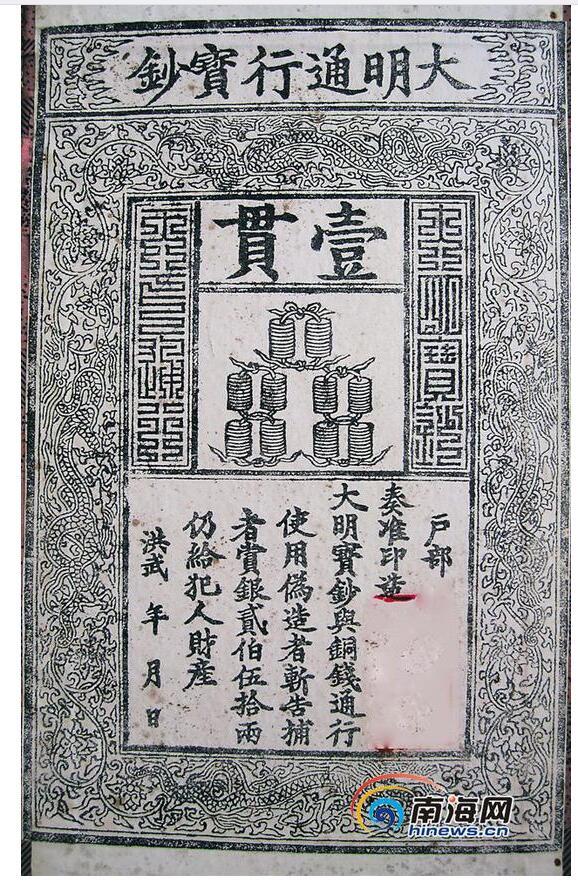 大明通行寶鈔
壹貫
户部
奏准印造
大明寶鈔與銅錢通行
使用僞造者斬告捕
者賞銀貳伯伍拾兩
仍給犯人財産
洪武 年 月 日
南海网
hinews.cn